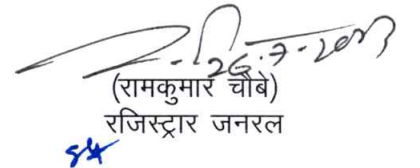 26.7.2023
(रामकुमार चौबे)
रजिस्ट्रार जनरल